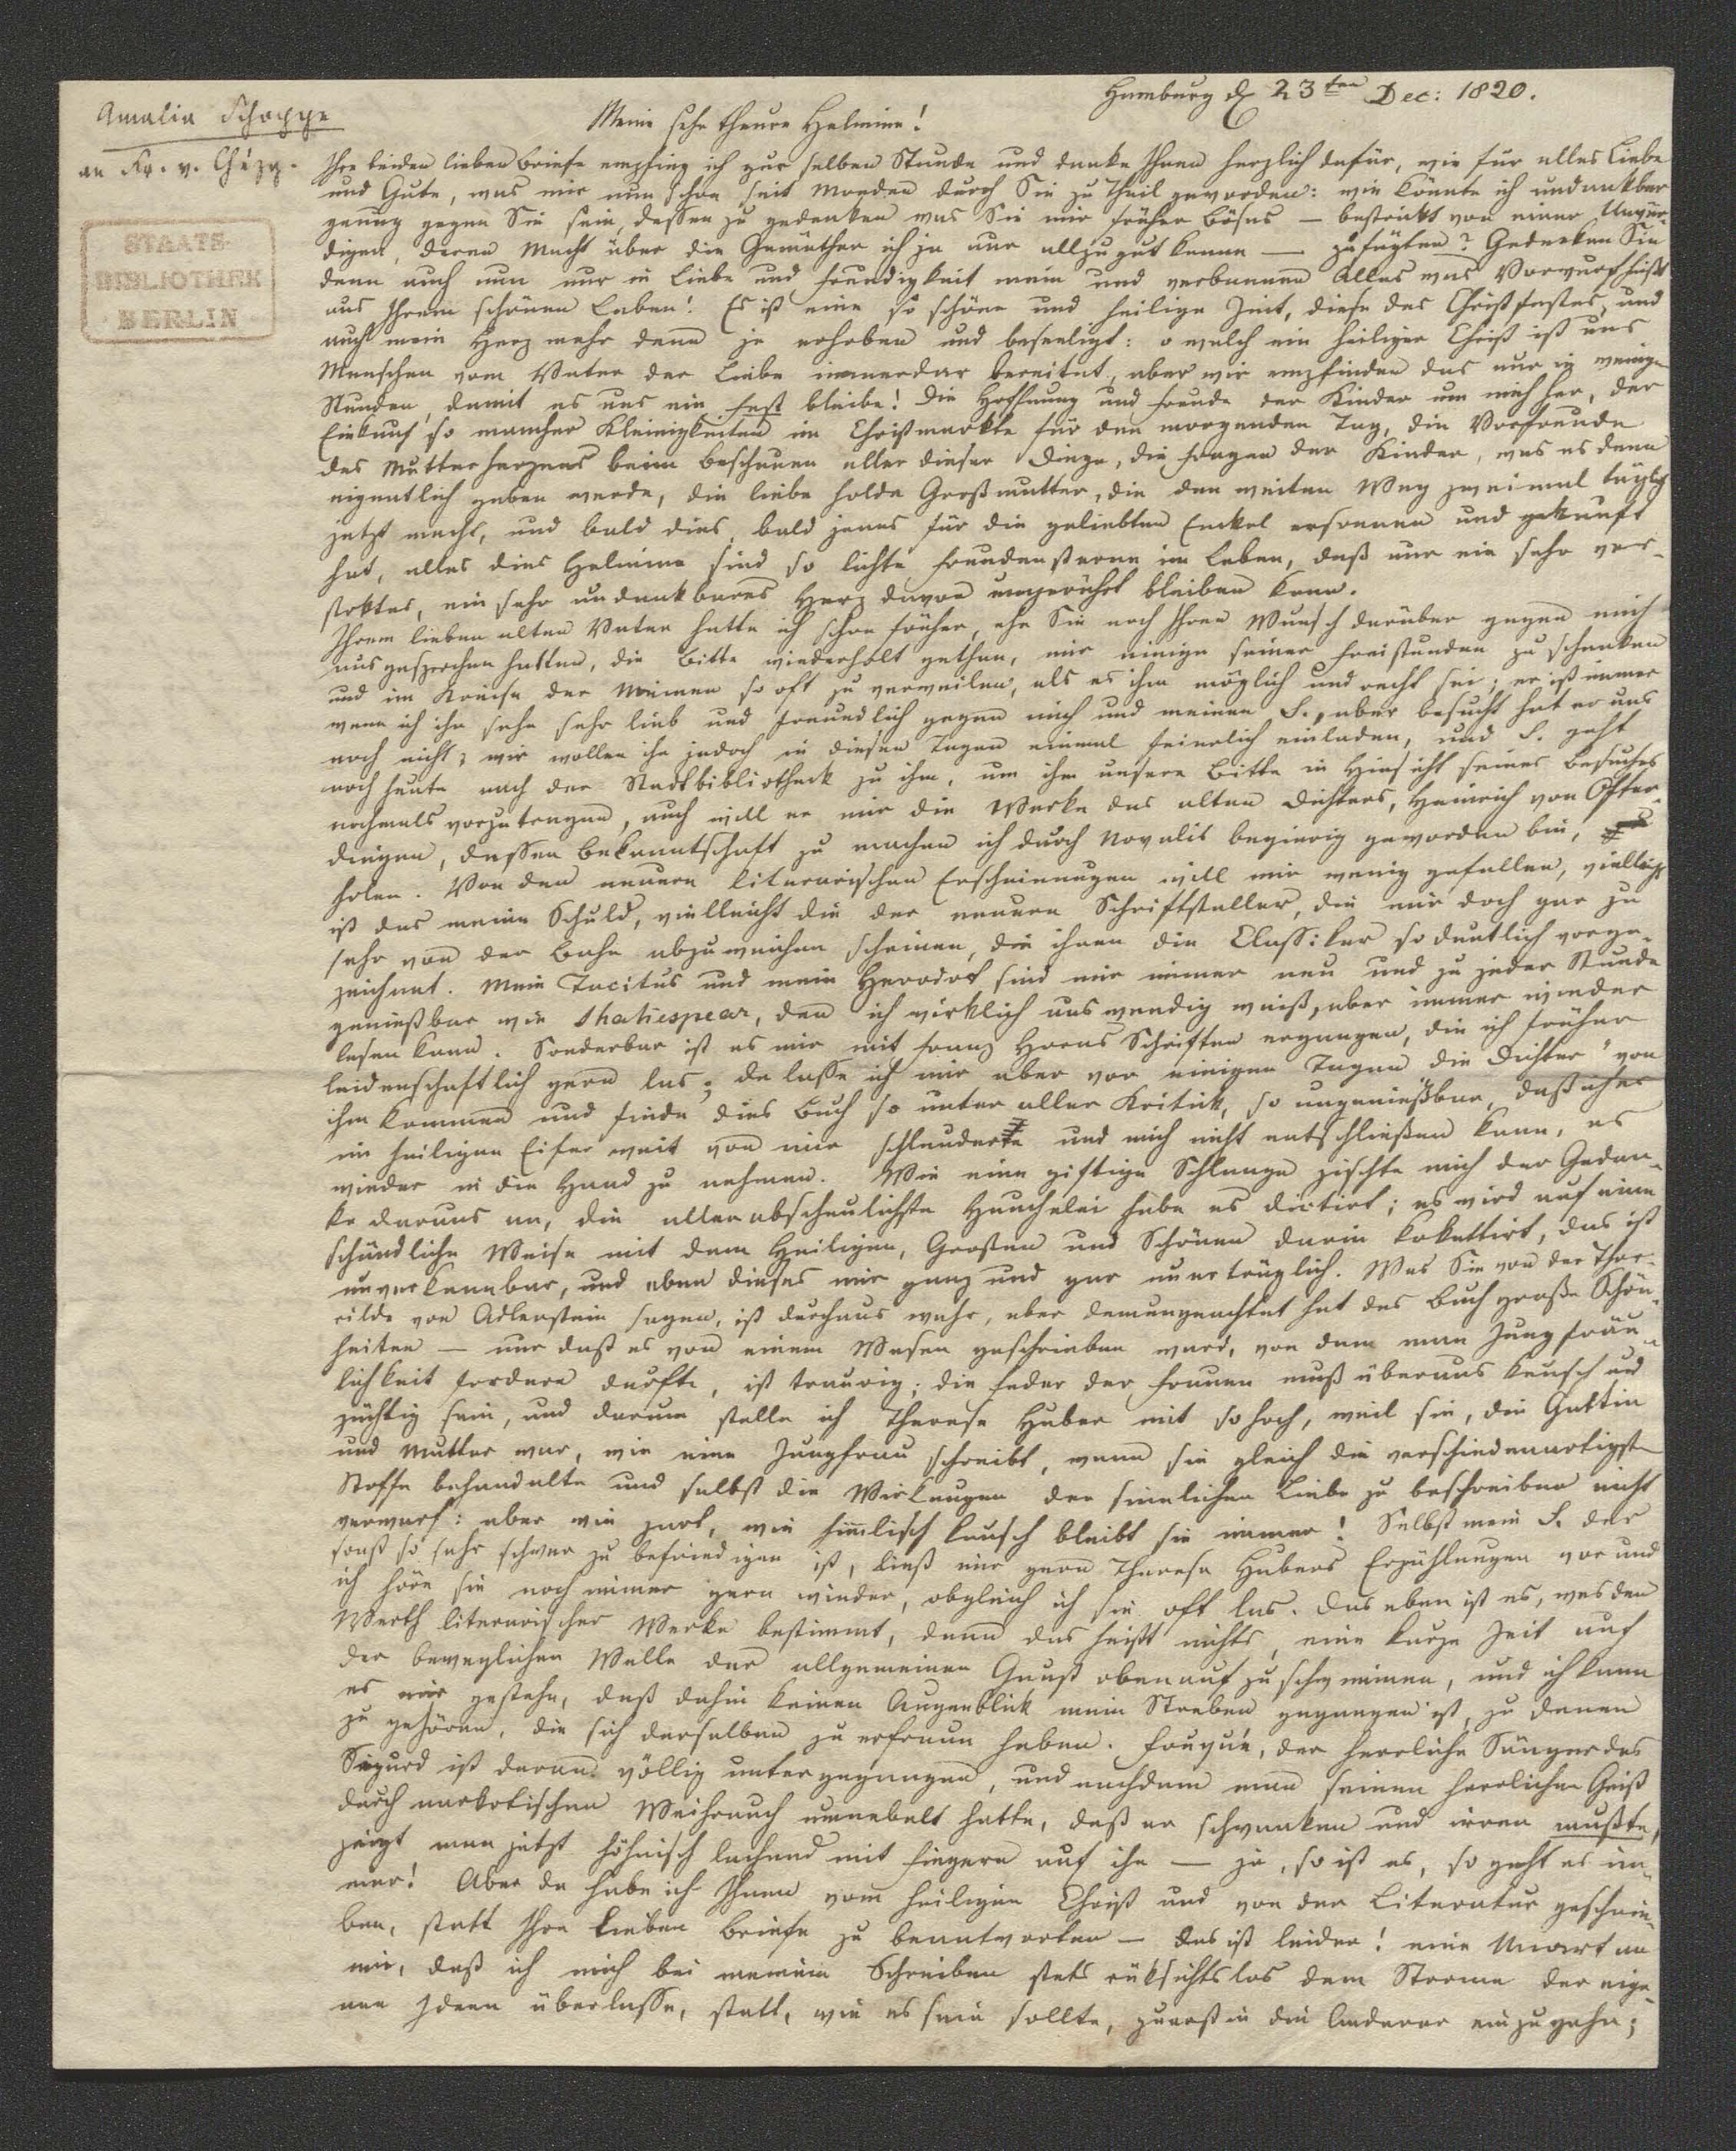 Hamburg d 23ten Dec: 1820.
Amalia Schoppe
an Fr. v. Chézy.
STAATS-
BIBLIOTHEK
BERLIN
Meine sehr theure Helmine!
Ihre beiden lieben Briefe empfing ich zur selben Stunde und danke Ihnen herzlich dafür, wie für alles Liebe
und Gute, was mir nun schon seit Monden durch Sie zu Theil geworden: wie könnte ich undankbar
genug gegen Sie sein, dessen zu gedenken was Sie mir früher Böses — bestrickt von einer Unwür-
digen, deren Macht über die Gemüther ich ja nur allzugut kenne — zufügten? Gedenken Sie
denn auch nun nur in Liebe und Freudigkeit mein und verbannen Alles was Vorwurf heißt
aus Ihrem schönen Leben! Es ist eine so schöne und heilige Zeit, diese des Christfestes, und
auch mein Herz mehr denn je erhoben und beseeligt: o welch ein heiliger Christ ist uns
Menschen vom Vater der Liebe immerdar bereitet, aber wir empfinden das nur in wenigen
Stunden, damit es uns ein Fest bleibe! Die Hoffnung und Freude der Kinder um mich her, der
Einkauf so mancher Kleinigkeiten im Christmarkte für den morgenden Tag, die Vorfreude
des Mutterherzens beim Beschauen aller dieser Dinge, die Fragen der Kinder, was es denn
eigentlich geben werde, die liebe holde Großmutter, die den weiten Weg zweimal täglich
jetzt macht, und bald dies, bald jenes für die geliebten Enkel ersonnen und gekauft
hat, alles dies Helmine sind so lichte Freudensterne im Leben, daß nur ein sehr ver-
stoktes, ein sehr undankbares Herz davon ungerührt bleiben kann.
Ihrem lieben alten Vater hatte ich schon früher, ehe Sie noch Ihren Wunsch darüber gegen mich
ausgesprochen hatten, die Bitte wiederholt gethan, mir einige seiner Freistunden zu schenken
und im Kreise der Meinen so oft zu verweilen, als es ihm möglich und recht sei; er ist immer
wenn ich ihn sehe sehr lieb und freundlich gegen mich und meinen S., aber besucht hat er uns
noch nicht; wir wollen ihn jedoch in diesen Tagen einmal feierlich einladen, und S. geht
noch heute nach der Stadtbibliotheck zu ihm, um ihm unsere Bitte in Hinsicht seines Besuches
nochmals vorzutragen, auch will er mir die Werke des alten Dichters, Heinrich von Ofter-
dingen, dessen Bekanntschaft zu machen ich durch Novalis begierig geworden bin,
holen. Von den neuern literarischen Erscheinungen will mir wenig gefallen, vielleicht
ist das meine Schuld, vielleicht die der neuern Schriftsteller, die mir doch gar zu
sehr von der Bahn abzuweichen scheinen, die ihnen die Classiker so deutlich vorge-
zeichnet. Mein Tacitus und mein Herodot sind mir immer neu und zu jeder Stunde
genießbar wie Shakespear, den ich wirklich auswendig weiß, aber immer wieder
lesen kann. Sonderbar ist es mir mit Franz Horns Schriften ergangen, die ich früher
leidenschaftlich gern las; da lasse ich mir aber vor einigen Tagen die Dichter" von
ihm kommen und finde dies Buch so unter aller Kritick, so ungenießbar, daß ich es
im heiligen Eifer weit von mir schleuderte und mich nicht entschließen kann, es
wieder in die Hand zu nehmen. Wie eine giftige Schlange zischte mich der Gedan-
ke daraus an, die allerabscheulichste Heuchelei habe es dictirt; es wird auf eine
schändliche Weise mit dem Heiligen, Großen und Schönen darin kokettirt, das ist
unverkennbar, und eben dieses mir ganz und gar unerträglich. Was Sie von der Thor-
rilde von Adlerstein sagen, ist durchaus wahr, aber demungeachtet hat das Buch große Schön-
heiten — nur daß es von einem Wesen geschrieben ward, von dem man Jungfräu-
lichkeit fordern durfte, ist traurig; die Feder der Frauen muß überaus keusch und
züchtig sein, und darum stelle ich Therese Huber mit so hoch, weil sie, die Gattin
und Mutter war, wie eine Jungfrau schreibt, wenn sie gleich die verschiedenartigsten
Stoffe behandelte und selbst die Wirkungen der sinnlichen Liebe zu beschreiben nicht
verwarf: aber wie zart, wie himmlisch keusch bleibt sie immer! Selbst mein S. der
sonst so sehr schwer zu befriedigen ist, ließt mir gern Therese Hubers Erzählungen vor und
ich höre sie noch immer gern wieder, obgleich ich sie oft las. Das eben ist es, was den
Werth literarischer Werke bestimmt, denn das heißt nichts, eine kurze Zeit auf
der beweglichen Welle der allgemeinen Gunst obenauf zu schwimmen, und ich kann
es mir gestehn, daß dahin keinen Augenblick mein Streben gegangen ist, zu denen
zu gehören, die sich derselben zu erfreun haben. Fouqué, der herrliche Sänger des
Sigurd ist daran völlig untergegangen, und nachdem man seinen herrlichen Geist
durch narkotischen Weihrauch umnebelt hatte, daß er schwanken und irren mußte,
zeigt man jetzt höhnisch lachend mit Fingern auf ihn — ja, so ist es, so geht es im-
mer! Aber da habe ich Ihnen vom heiligen Christ und von der Literatur geschrie-
ben, statt Ihre lieben Briefe zu beantworten — das ist leider! eine Unart an
mir, daß ich mich bei meinem Schreiben stets rüksichtslos dem Strome der eige-
nen Ideen überlasse, statt, wie es sein sollte, zuerst in die Anderer einzugehn;